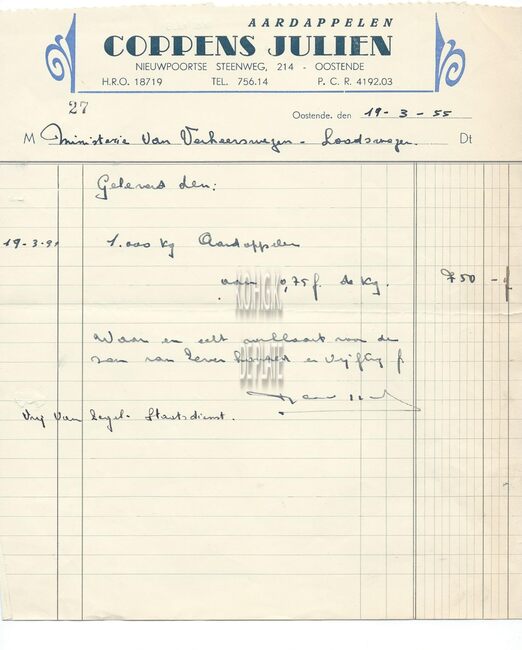 AARDAPPELEN
COPPENS JULIEN
NIEUWPOORTSE STEENWEG, 214 - OOSTENDE
H.R.O. 18719 TEL. 756.14 P. C. R. 4192.03
27
Oostende, den 19-3-55
M Ministerie Van Verkeerswegen - Loodswezen Dt
Geleverd den:
19-3- 1.000 Kg Aardappelen
aan 0,75 f. de Kg. 750 - f
KOHGK.
DE PLATE
Waar en echt van de
som van Zeven honderd en vijftig f
Vrij Van Zegel - Staatsdienst.